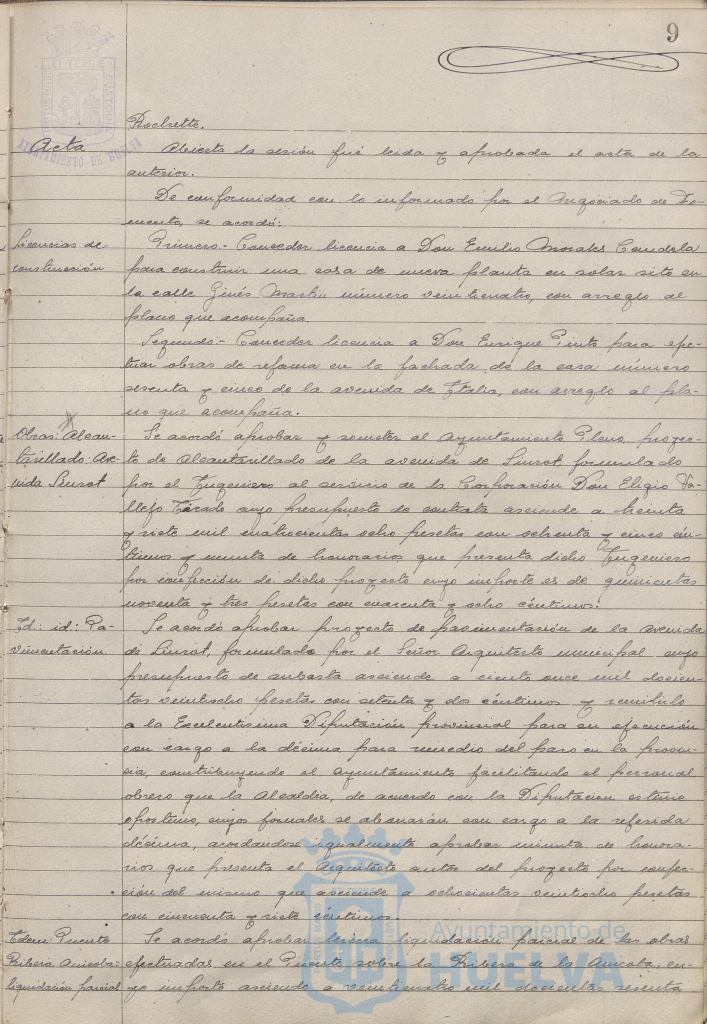 9
Rochette.
Acta
Abierta la sesión fué leida y aprobada el acta de la
anterior.
De conformidad con lo informado por el Negociado de Fo-
mento, se acordó:
Licencias de
construcción
Primero.- Conceder licencia a Don Emilio Morales Candela
para construir una casa de nueva planta en solar sito en
la calle Ginés Martin número veinticuatro, con arreglo al
plano que acompaña.
Segundo.- Conceder licencia a Don Enrique Pinto para efec-
tuar obras de reforma en la fachada de la casa número
sesenta y cinco de la avenida de Italia, con arreglo al pla-
no que acompaña.
Obras: Alcan-
tarillado: Ave-
nida Siurot
Se acordó aprobar y someter al Ayuntamiento Pleno, proyec-
to de Alcantarillado de la avenida de Siurot, formulado
por el Ingeniero al servicio de la Corporación Don Eligio Va-
llejo Tirado cuyo presupuesto de contrata asciende a treinta
y siete mil cuatrocientas ocho pesetas con ochenta y cinco cén-
timos y minuta de honorarios que presenta dicho Ingeniero
por confección de dicho proyecto cuyo importe es de quinientas
noventa y tres pesetas con cuarenta y ocho céntimos.
Id: id: Pa-
vimentación
Se acordó aprobar proyecto de pavimentación de la avenida
de Siurot, formulado por el Señor Arquitecto municipal cuyo
presupuesto de subasta asciende a ciento once mil doscien-
tas veintiocho pesetas con setenta y dos céntimos y remitirlo
a la Excelentísima Diputación provincial para su ejecución
con cargo a la décima para remedio del paro en la provin-
cia, contribuyendo el Ayuntamiento facilitando el personal
obrero que la Alcaldía, de acuerdo con la Diputación estime
oportuno, cuyos jornales se abonarán con cargo a la referida
décima, acordandose igualmente aprobar minuta de honora-
rios que presenta el Arquitecto autor del proyecto por confec-
ción del mismo que asciende a ochocientas veintiocho pesetas
con cincuenta y siete céntimos.
Idem: Puente
Ribera Anicoba:
liquidación parcial
Se acordó aprobar tercera liquidación parcial de las obras
efectuadas en el Puente sobre la Ribera de la Anicoba, cu-
yo importe asciende a veinticuatro mil doscientas sesenta
AYUNTAMIENTO DE HUELVA
Ayuntamiento de
HUELVA